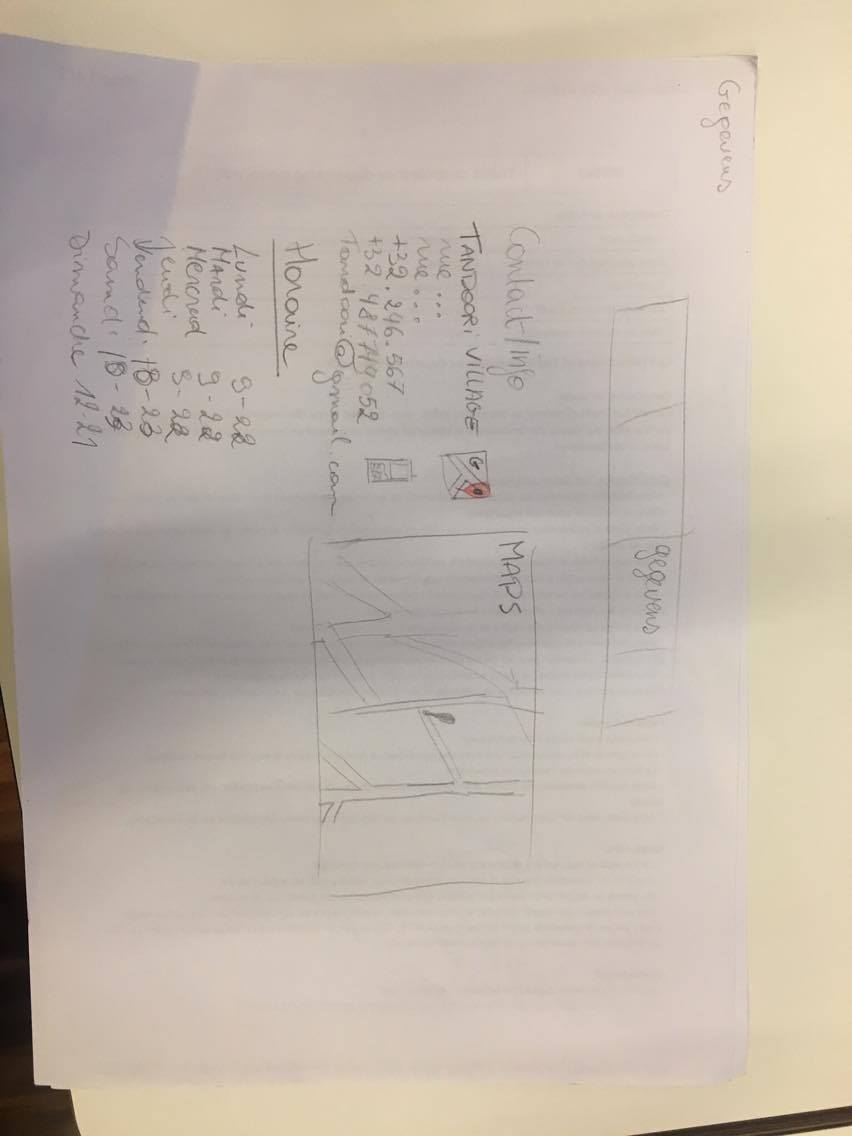 Gegevens
gegevens
Contait/info
TANDOORI VILLAGE
G
rue ...
rue ...
+32.246.567
+32 487749052
Tandoori@gmail.com
MAPS
Horaire
Lundi - 9-22
Mardi 9-22
Mercred 9-22
Jeudi
Vendredi 18-23
Samdi 18-23
Dimanche 12-21